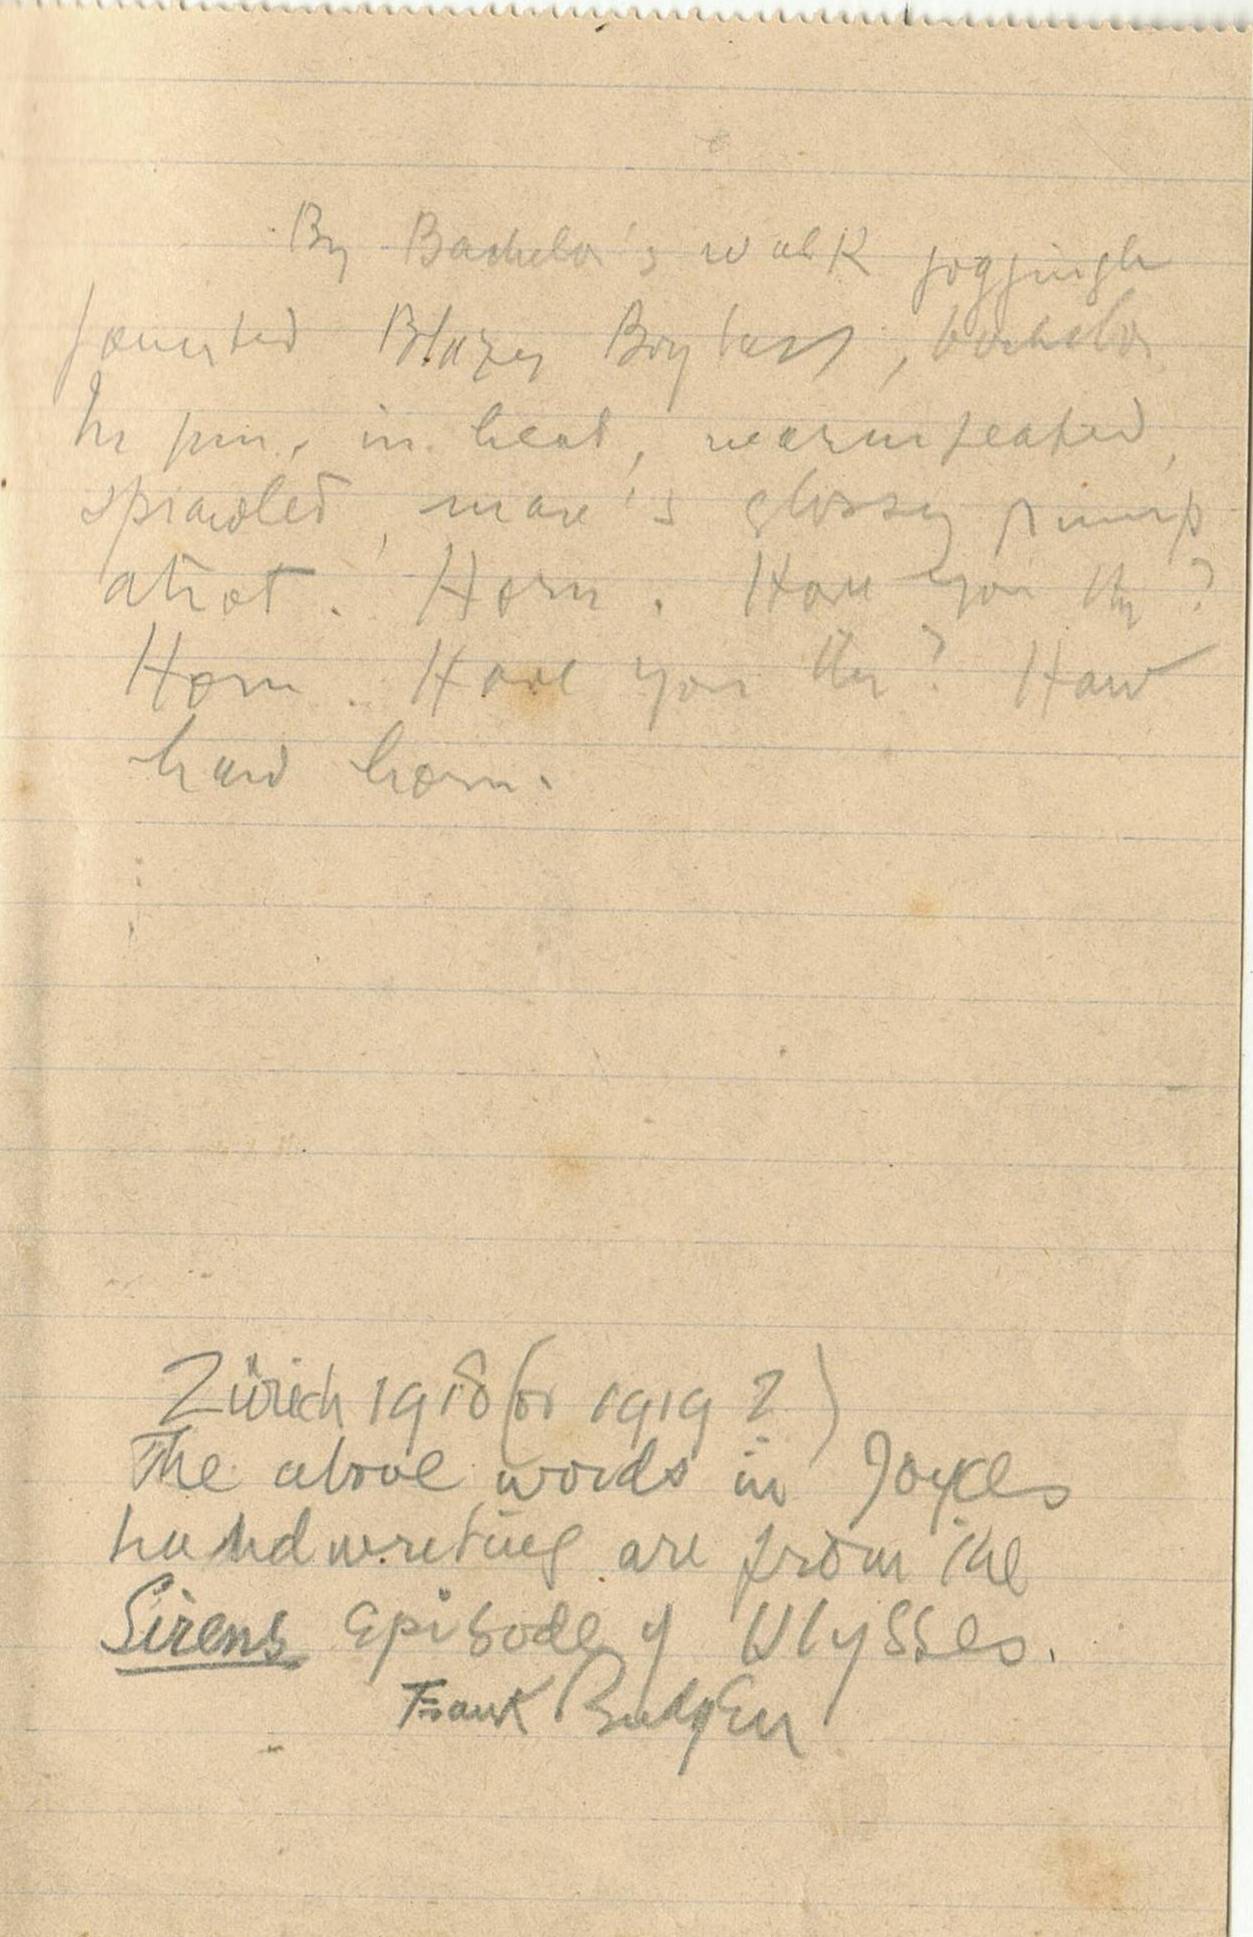 By Bachelor's walk joggingle
jaunted Blazes Boylan, bachelor
In sun, in heat, warmseated,
sprawled, mare's glossy rump
atrot. Horn. Have you the?
Horn. Have you the? Haw
haw horn.
Zürich 1918 (or 1919?)
The above words in Joyces
handwriting are from the
Sirens episode of Ulysses.
Frank Budgen